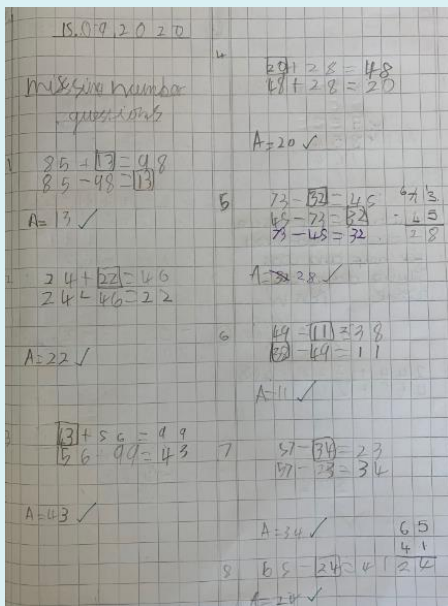 15.09.2020
missing number
questions
1
85 + 13 = 98
85 - 98 = 13
A = 13 ✓
2
24 + 22 = 46
24 - 46 = 22
A = 22 ✓
3
43 + 56 = 99
56 - 99 = 43
A = 43 ✓
4
20 + 28 = 48
48 + 28 = 20
A = 20 ✓
5
73 - 32 = 45
45 - 73 = 32
73 - 45 = 32
6 7 13
- 45
28
A = 28 ✓
6
49 - 11 = 38
- 49 = 11
A = 11 ✓
7
57 - 34 = 23
57 - 23 = 34
A = 34 ✓
8
65 - 24 = 41
65
41
24
A = 24 ✓